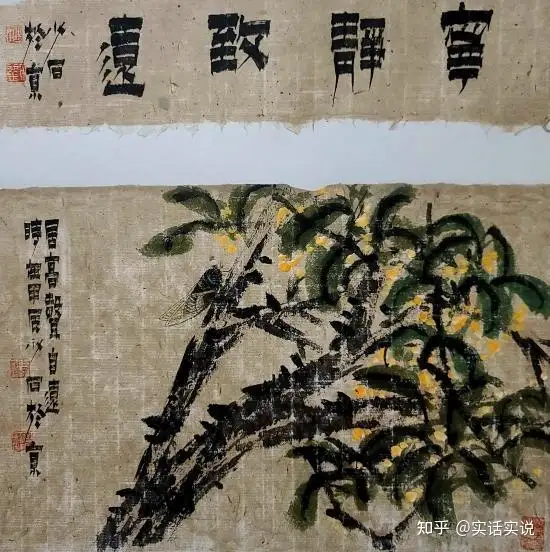 寧靜致遠
石
於京
居高聲自遠
時夏石於京
知乎 @实话实说